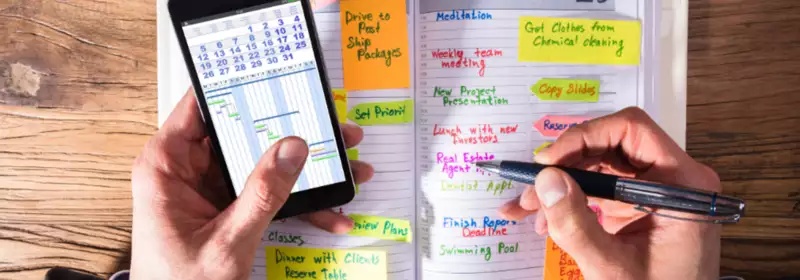 5 6 7 8 9 10 11
12 13 14 15 16 17 18
19 20 21 22 23 24 25
26 27 28 29 30 31
Drive to
Post
Ship
Packages
Set Priori
eview Plans
Classes
Dinner with Clients
Reserve Table
Meditation
Weekly team
meeting
New Project
Presentation
Lunch with new
investors
Real Estate
Agent
Dentist Appt.
Finish Repor
Deadline
Swimming Pool
Get Clothes from
Chemical cleaning
Copy Slides
Reserve
Eggs